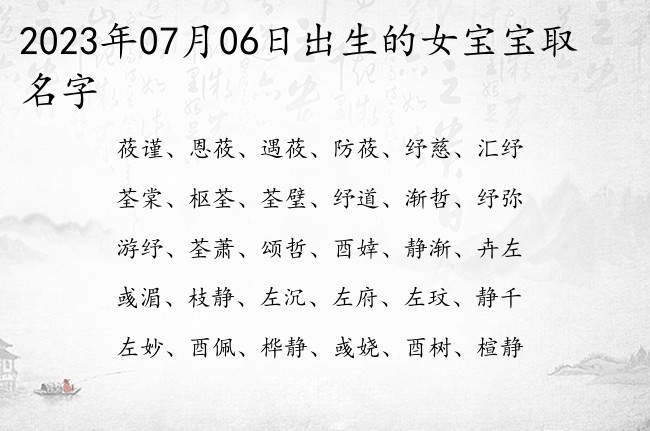 2023年07月06日出生的女宝宝取
名字
莜谨、恩莜、遇莜、防莜、纾慈、汇纾
荃棠、枢荃、荃璧、纾道、渐哲、纾弥
游纾、荃萧、颂哲、酉婞、静渐、卉左
彧湄、枝静、左沉、左府、左玟、静千
左妙、酉佩、桦静、彧娆、酉树、楦静